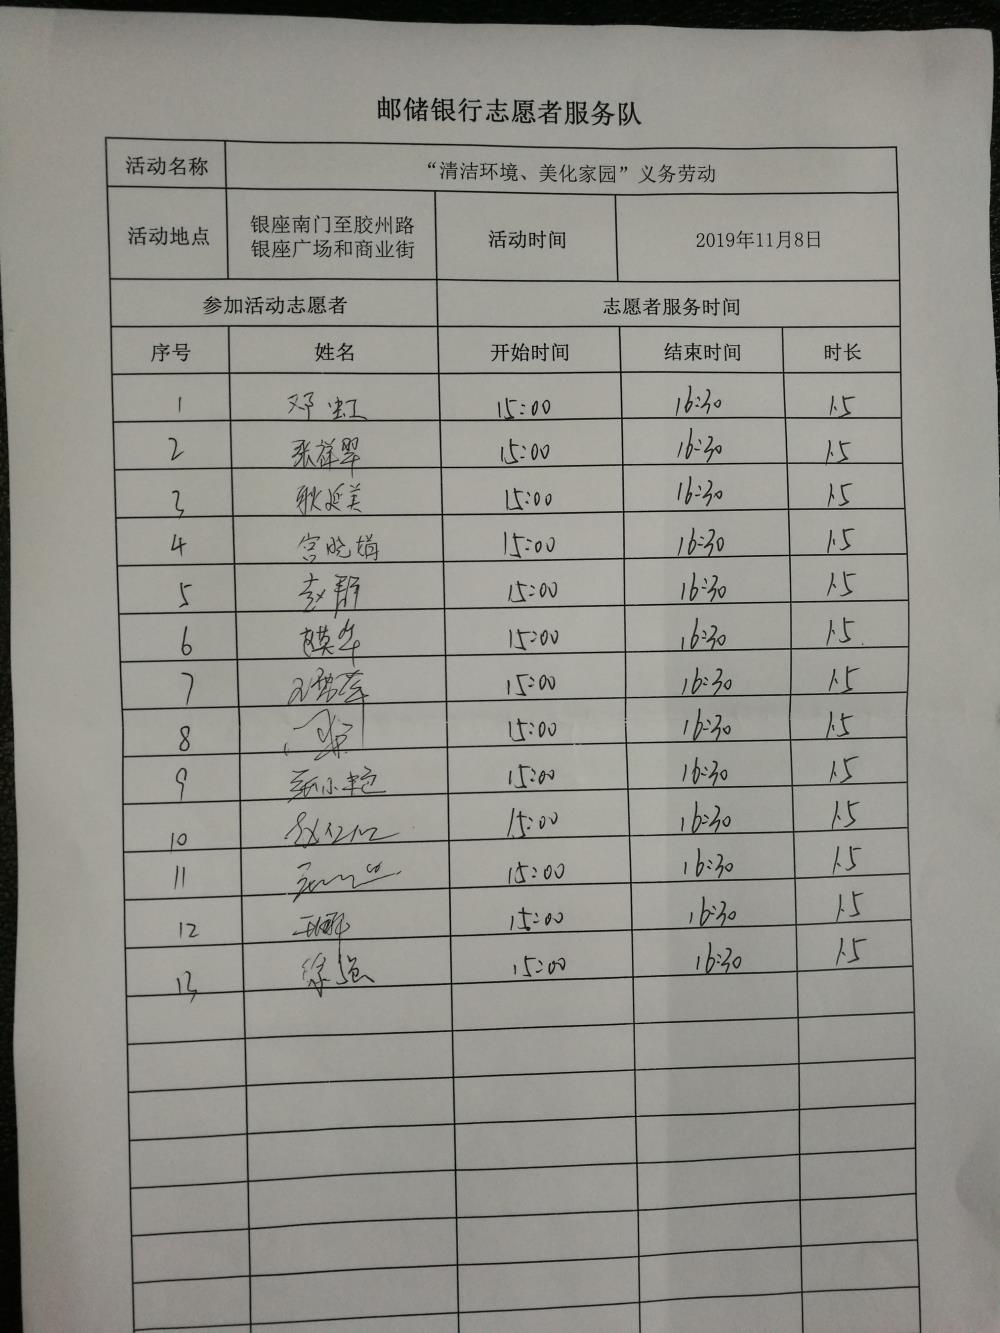 邮储银行志愿者服务队
活动名称 “清洁环境、美化家园”义务劳动
活动地点 银座南门至胶州路 活动时间 2019年11月8日
银座广场和商业街
参加活动志愿者 志愿者服务时间
序号 姓名 开始时间 结束时间 时长
1 邓虹 15:00 16:30 1.5
2 张祥翠 15:00 16:30 1.5
3 耿延美 15:00 16:30 1.5
4 宫晓娟 15:00 16:30 1.5
5 赵静 15:00 16:30 1.5
6 15:00 16:30 1.5
7 15:00 16:30 1.5
8 15:00 16:30 1.5
9 张小艳 15:00 16:30 1.5
10 15:00 16:30 1.5
11 15:00 16:30 1.5
12 15:00 16:30 1.5
13 徐强 15:00 16:30 1.5